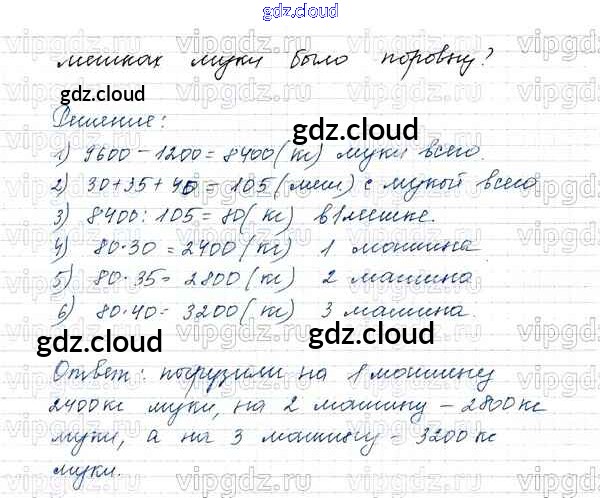 gdz.cloud
мешках муки было поровну?
gdz.cloud
Решение:
gdz.cloud
1) 9600 - 1200 = 8400 (кг) муки всего.
2) 30+35+40 = 105 (меш) с мукой всего
3) 8400 : 105 = 80 (кг) в 1 мешке.
4) 80·30 = 2400 (кг) 1 машина
5) 80·35 = 2800 (кг) 2 машина
6) 80·40 = 3200 (кг) 3 машина.
gdz.cloud
gdz.cloud
Ответ: погрузили на 1 машину
2400 кг муки, на 2 машину – 2800 кг
муки, а на 3 машину – 3200 кг
муки.
vipgdz.ru